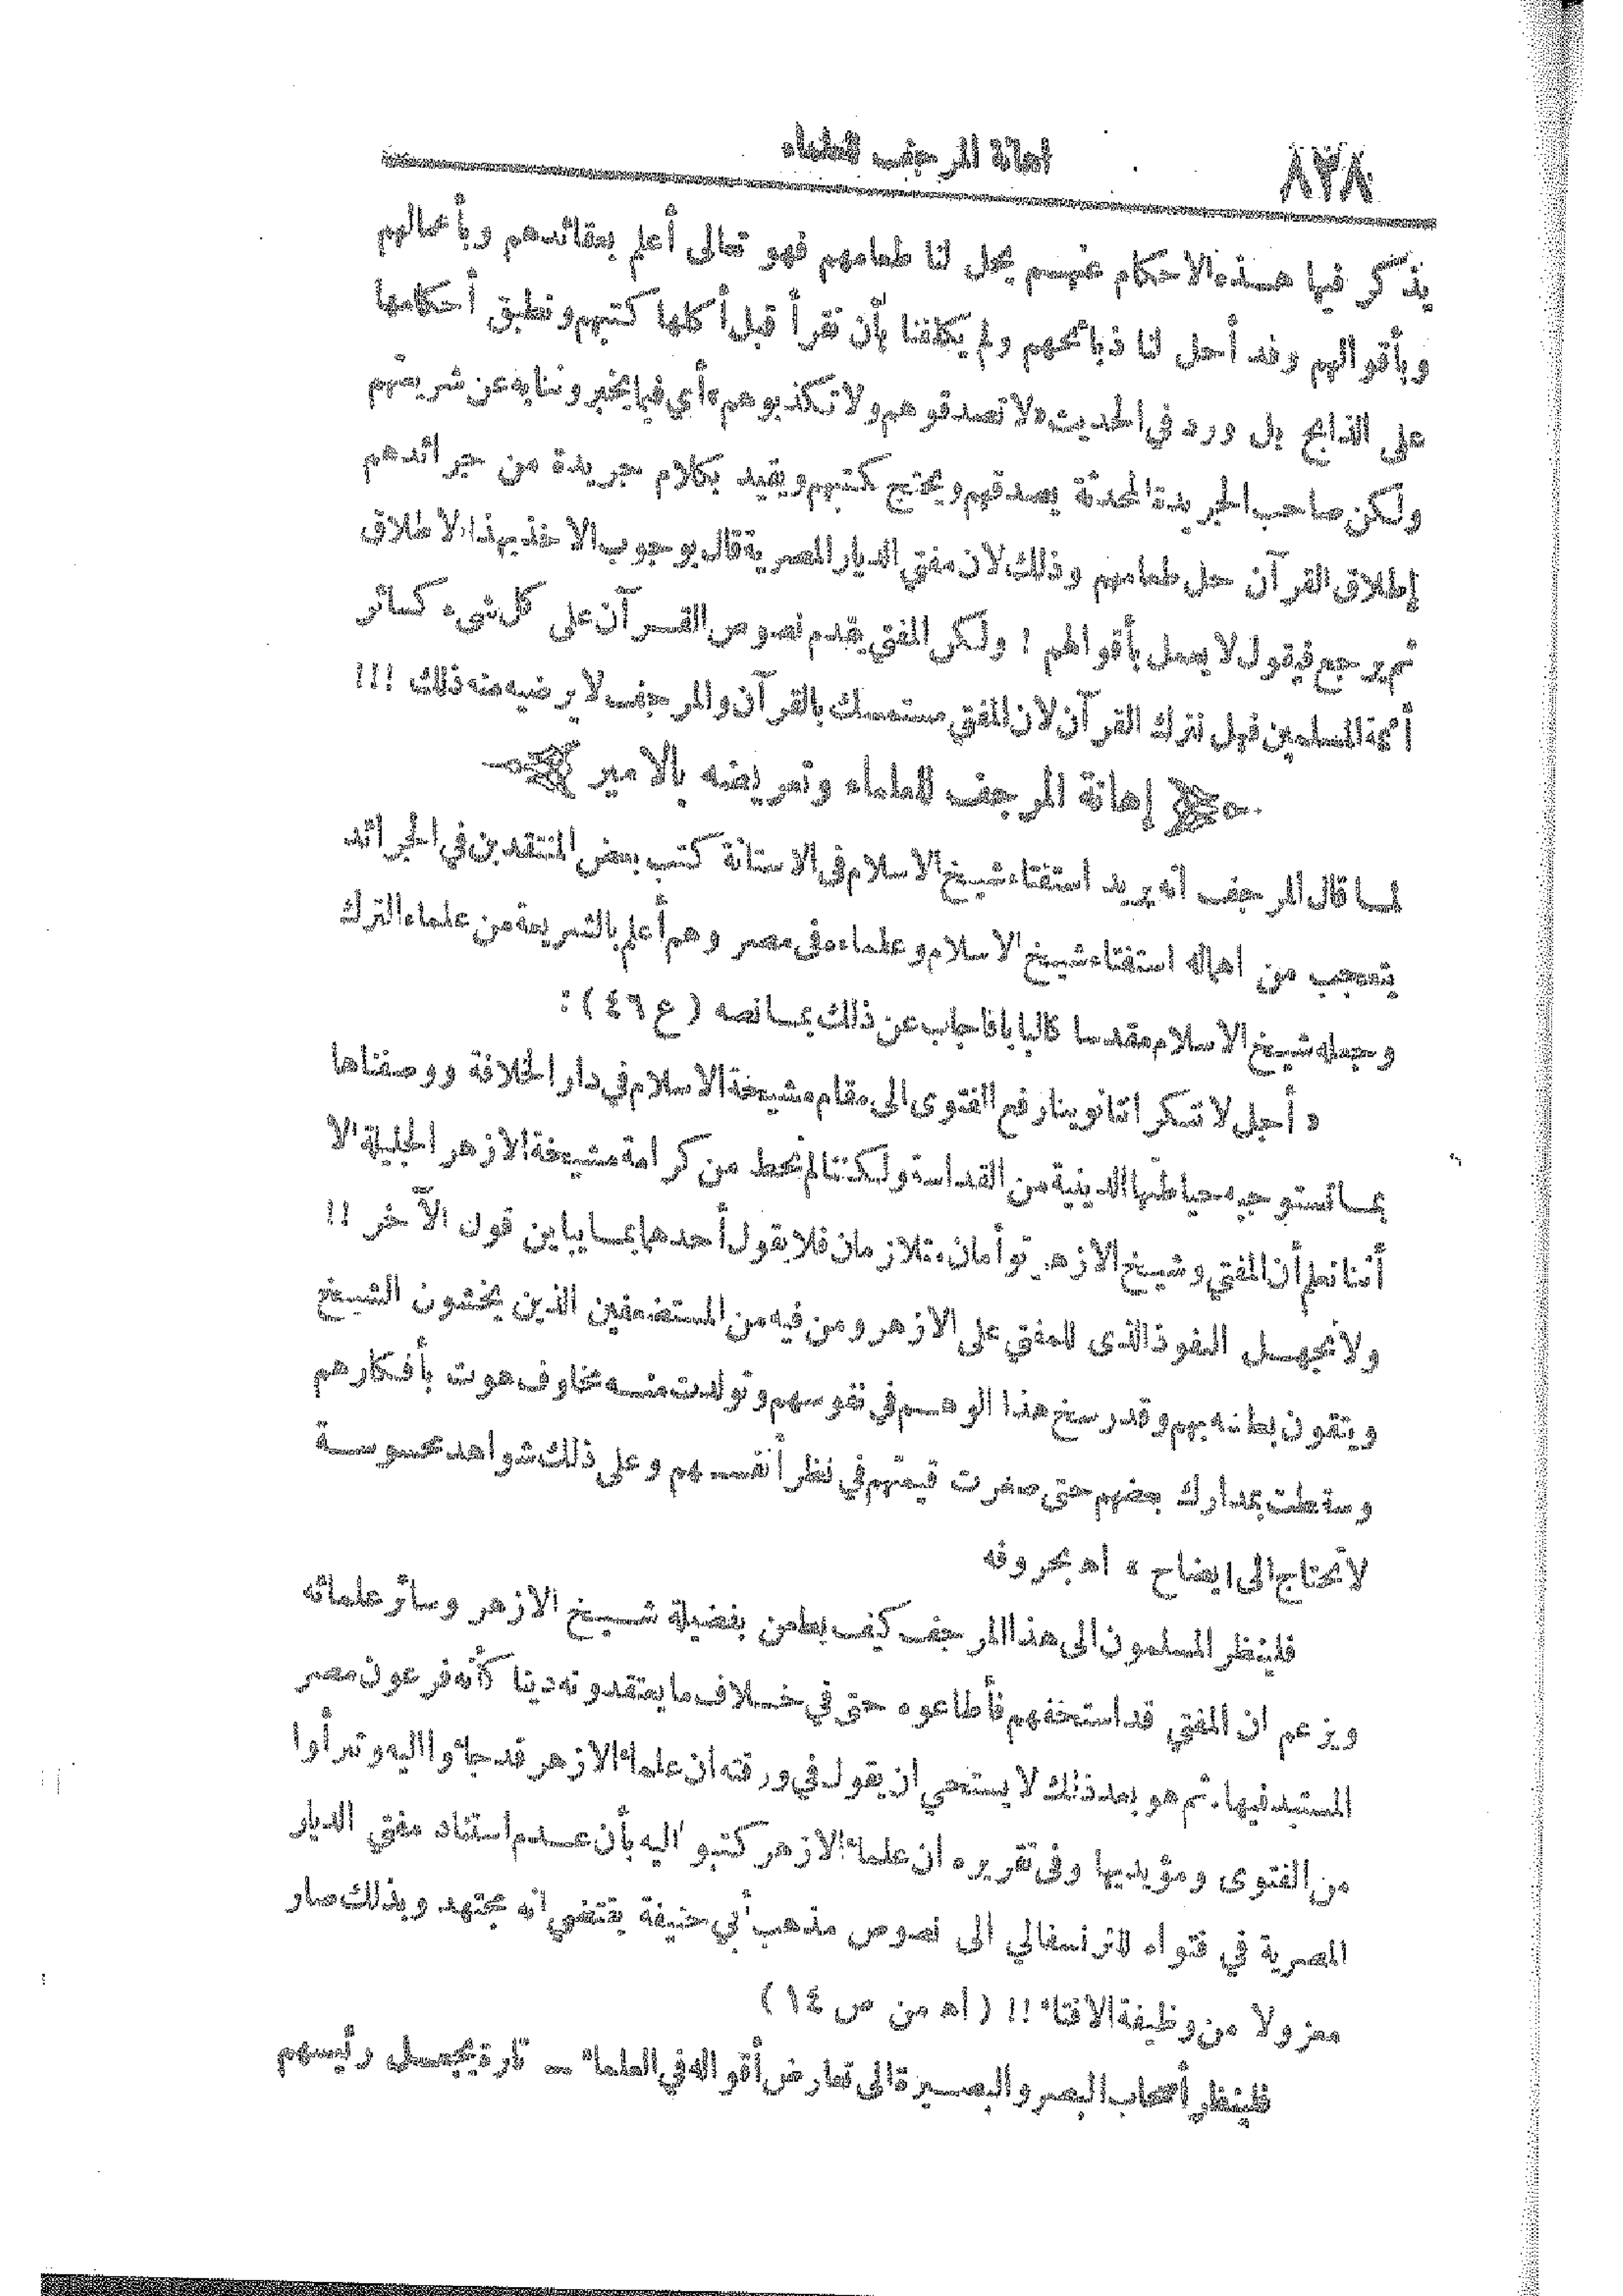 ٨٢٨
اهانة المرجف للعلماء
يذكر فيها هذه الاحكام عنهم يحل لنا طعامهم فهو تعالى أعلم بعقائدهم وبأعمالهم
وبأقوالهم وقد أحل لنا ذبائحهم ولم يكلفنا بأن نقرأ قبل أكلها كتبهم ونطبق أحكامها
على الذابح بل ورد في الحديث «لا تصدقوهم ولا تكذبوهم» أي فيما يخبروننا به عن شريعتهم
ولكن صاحب الجريدة المحدثة يصدقهم ويحتج بكتبهم ويقيد بكلام جريدة من جرائدهم
إطلاق القرآن حل طعامهم وذلك لان مفتي الديار المصرية قال بوجوب الاخذ بهذا الاطلاق
ثم يرجع فيقول لا يعمل بأقوالهم ! ولكن المفتي يقدم نصوص القرآن على كل شيء كسائر
أئمة المسلمين فهل نترك القرآن لان المفتي مستمسك بالقرآن والمرجف لا يرضيه منه ذلك !!!
إهانة المرجف للعلماء وتعريضه بالامير
لما قال المرجف انه يريد استفتاء شيخ الاسلام في الاستانة كتب بعض المنتقدين في الجرائد
يتعجب من اهماله استفتاء شيخ الاسلام وعلماءه في مصر وهم أعلم بالشريعة من علماء الترك
وجعله شيخ الاسلام مقدسا كالبابا فاجاب عن ذلك بما نصه ( ع ٤٦ ) :
« أجل لا ننكر اننا نوينا رفع الفتوى الى مقام مشيخة الاسلام في دار الخلافة ووصفناها
بما تستوجبه حياطتها الدينية من القداسة ولكننا لم نحط من كرامة مشيخة الازهر الجليلة الا
أننا نعلم أن المفتي وشيخ الازهر توأمان متلازمان فلا يقول أحدهما بما يباين قول الآخر !!
ولا نجهل النفوذ الذي للمفتي على الازهر ومن فيه من المستضعفين الذين يخشون الشيخ
ويتقون بطشه بهم وقد رسخ هذا الوهم في نفوسهم وتولدت منه مخاوف هوت بأفكارهم
وسقطت بمدارك بعضهم حتى صغرت قيمتهم في نظر أنفسهم وعلى ذلك شواهد محسوسة
لا تحتاج الى ايضاح » اه بحروفه
فلينظر المسلمون الى هذا المرجف كيف يطعن بفضيلة شيخ الازهر وسائر علمائه
ويزعم ان المفتي قد استخفهم فأطاعوه حتى في خلاف ما يعتقدونه دينا كأنه فرعون مصر
المستبد فيها. ثم هو بعد ذلك لا يستحي ان يقول في ورقته ان علماء الازهر قد جاؤا اليه وتبرأوا
من الفتوى ومؤيديها وفي تقريره ان علماء الازهر كتبوا اليه بأن عدم استناد مفتي الديار
المصرية في فتواه للترنسفالي الى نصوص مذهب أبي حنيفة يقتضي انه مجتهد وبذلك صار
معزولا من وظيفة الافتاء !! ( اه من ص ١٤ )
فلينظر أصحاب البصر والبصيرة الى تعارض أقواله في العلماء — تارة يجعل رئيسهم